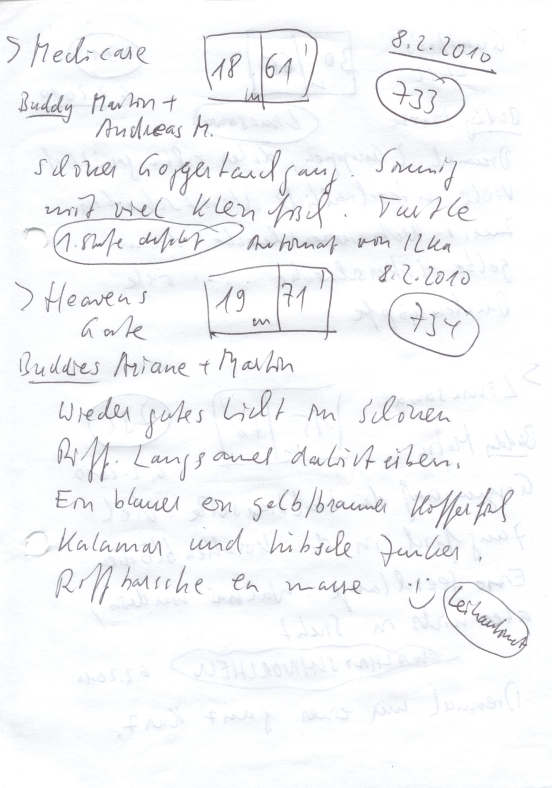 > Medicare 18 m 61' 8.2.2010
733
Buddy Martin +
Andreas M.
schöner Gorgertauchgang. Sonnig
mit viel Kleinfisch. Turtle
1. Stufe defekt Automat von Ilka
> Heavens 19 m 71' 8.2.2010
Gate 734
Buddies Ariane + Martin
Wieder gutes Licht im schönen
Riff. Langsames dahintreiben.
Ein blauer ein gelb/brauner Kofferfisch
Kalamar und hübsche Junker.
Riffbarsche en masse :-)
Leihautomat